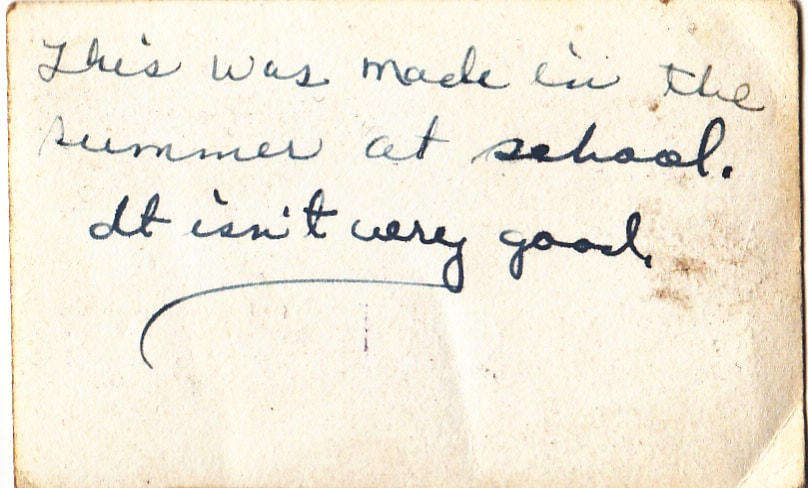 This was made in the
summer at school.
It isn't very good.